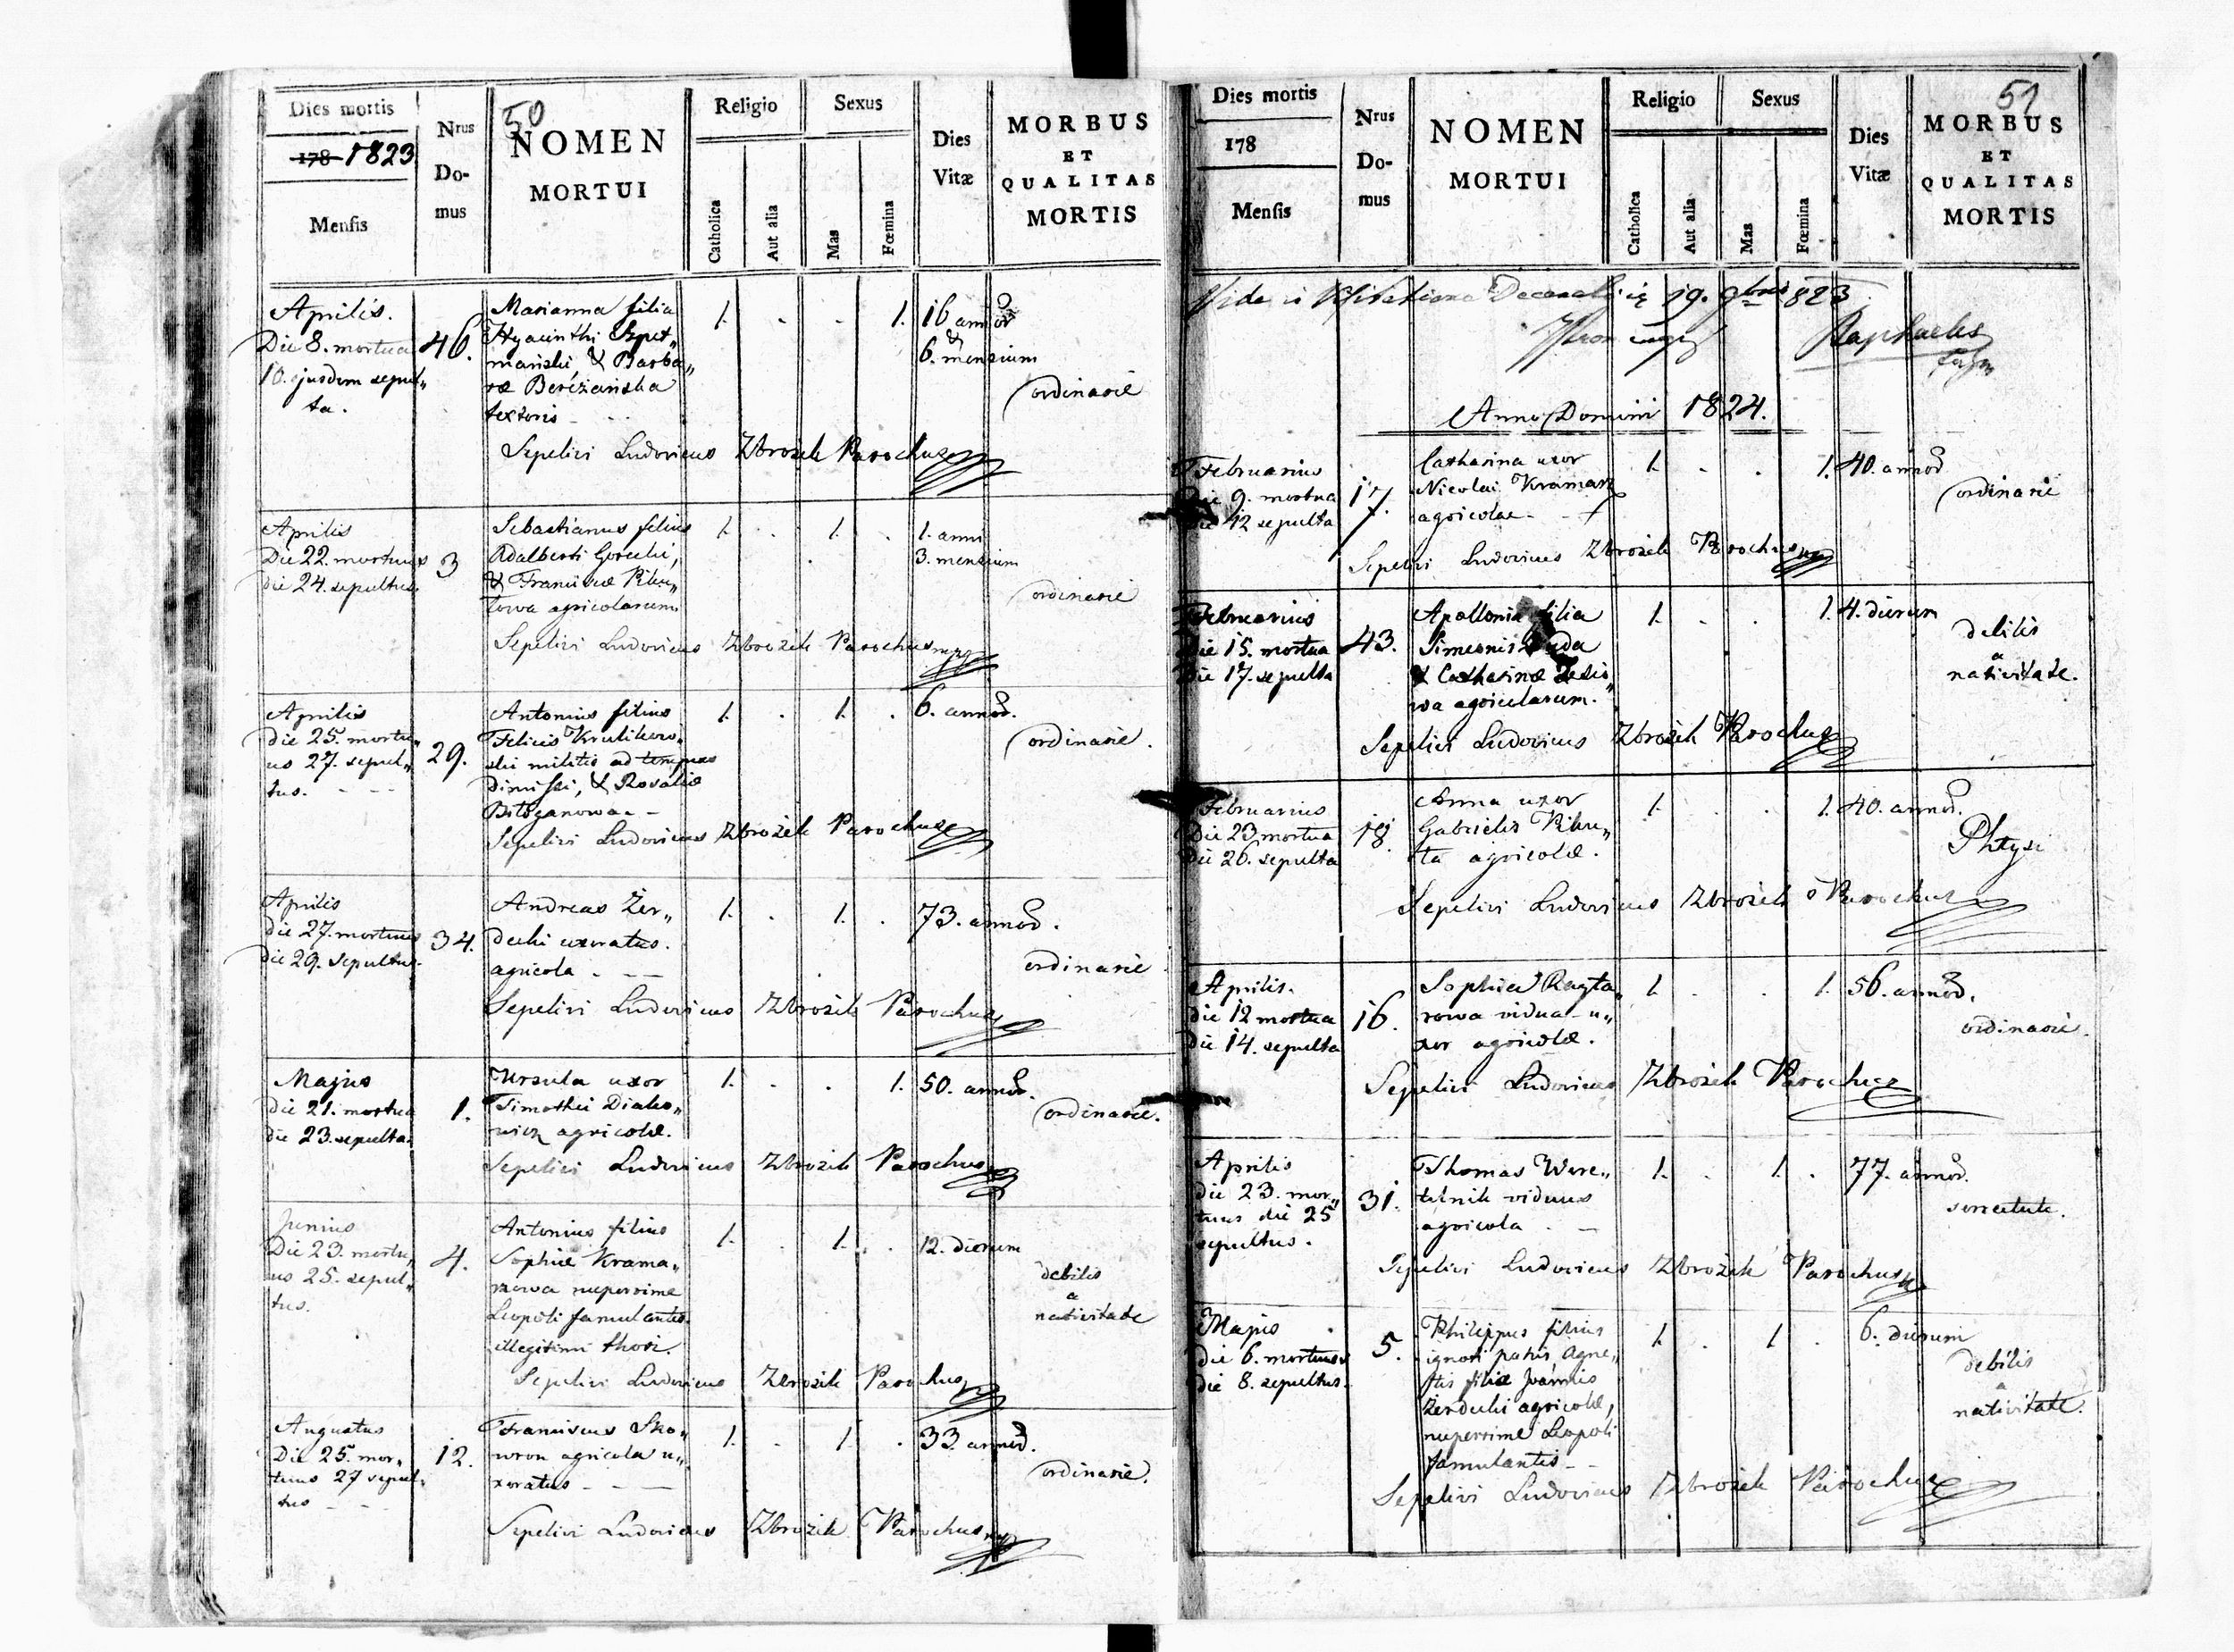 50
Dies mortis
178 1823
Mensis
Nrus
Do-
mus
NOMEN
MORTUI
Religio
Catholica
Aut alia
Sexus
Mas
Fœmina
Dies
Vitæ
MORBUS
ET
QUALITAS
MORTIS
Aprilis.
Die 8. mortua
10. ejusdem sepul„
ta.
46.
Marianna filia
Hyacinthi Szpet„
mański, & Barba„
ræ Bereżańska
textoris
1. . . 1.
16 annor
&
6. mensium
ordinarie
Sepelivi Ludovicus Zbrożek Parochus
Aprilis
Die 22. mortuus
die 24. sepultus.
3
Sebastianus filius
Adalberti Gorecki,
& Franciscæ Piku„
towa agricolarum
1. . 1. .
1. anni
3. mensium
ordinarie
Sepelivi Ludovicus Zbrożek Parochus mpp
Aprilis
die 25. mortu„
us 27. sepul„
tus.
29.
Antonius filius
Felicis Krulikow„
ski militis ad tempus
dimissi, & Rosaliæ
1. . 1. .
6. annor.
ordinarie.
Sepelivi Ludovicus Zbrożek Parochus
Aprilis
die 27. mortuus
die 29. sepultus.
34.
Andreas Żer„
decki uxoratus.
agricola
1. . 1. .
73. annor.
ordinarie
Sepelivi Ludovicus Zbrożek Parochus
Majus
die 21. mortua
die 23. sepulta.
1.
Ursula uxor
Timothei Diako„
wicz agricolæ.
1. . . 1.
50. annor.
ordinarie.
Sepelivi Ludovicus Zbrożek Parochus
Junius
Die 23. mortu„
us 25. sepul„
tus.
4.
Antonius filius
Sophiæ Krama„
rzowa nuperrime
Leopoli famulantis
illegitimi thori.
1. . 1. .
12. dierum
debilis
a
nativitate
Sepelivi Ludovicus Zbrożek Parochus
Augustus
Die 25. mor„
tuus 27 sepul„
tus
12.
Franciscus Sko„
wron agricola u„
xoratus
1. . 1. .
33. annor.
ordinarie.
Sepelivi Ludovicus Zbrożek Parochus
51
Dies mortis
178
Mensis
Nrus
Do-
mus
NOMEN
MORTUI
Religio
Catholica
Aut alia
Sexus
Mas
Fœmina
Dies
Vitæ
MORBUS
ET
QUALITAS
MORTIS
Vidi in Visitatione Decanali 19. 9bris 823
Raphaelis
Anno Domini 1824.
Februarius
Die 9. mortua
Die 12 sepulta
17.
Catharina uxor
Nicolai Kramarz
agricolæ
1. . . 1.
40. annor
ordinarie
Sepelivi Ludovicus Zbrożek Parochus
Februarius
Die 15. mortua
Die 17. sepulta
43.
Apollonia filia
Simeonis Duda
& Catharinæ
wa agricolarum.
1. . . 1.
4. dierum
debilis
a
nativitate.
Sepelivi Ludovicus Zbrożek Parochus
Februarius
Die 23 mortua
Die 26. sepulta
18.
Anna uxor
Gabrielis Piku„
ta agricolæ.
1. . . 1.
40. annor.
Phtysi
Sepelivi Ludovicus Zbrożek Parochus
Aprilis.
die 12 mortua
die 14. sepulta
16.
Sophia
rowa vidua u„
xor agricolæ.
1. . . 1.
56. annor.
ordinarie.
Sepelivi Ludovicus Zbrożek Parochus
Aprilis
die 23. mor„
tuus die 25
sepultus.
31.
Thomas Were„
telnik viduus
agricola
1. . 1. .
77. annor.
senectute.
Sepelivi Ludovicus Zbrożek Parochus
Majus
die 6. mortuus
die 8. sepultus.
5.
Philippus filius
ignoti patris, Agne„
tis filiæ Joannis
Żerdecki agricolæ,
nuperrime Leopoli
famulantis
1. . 1. .
6. dierum
debilis
a
nativitate.
Sepelivi Ludovicus Zbrożek Parochus